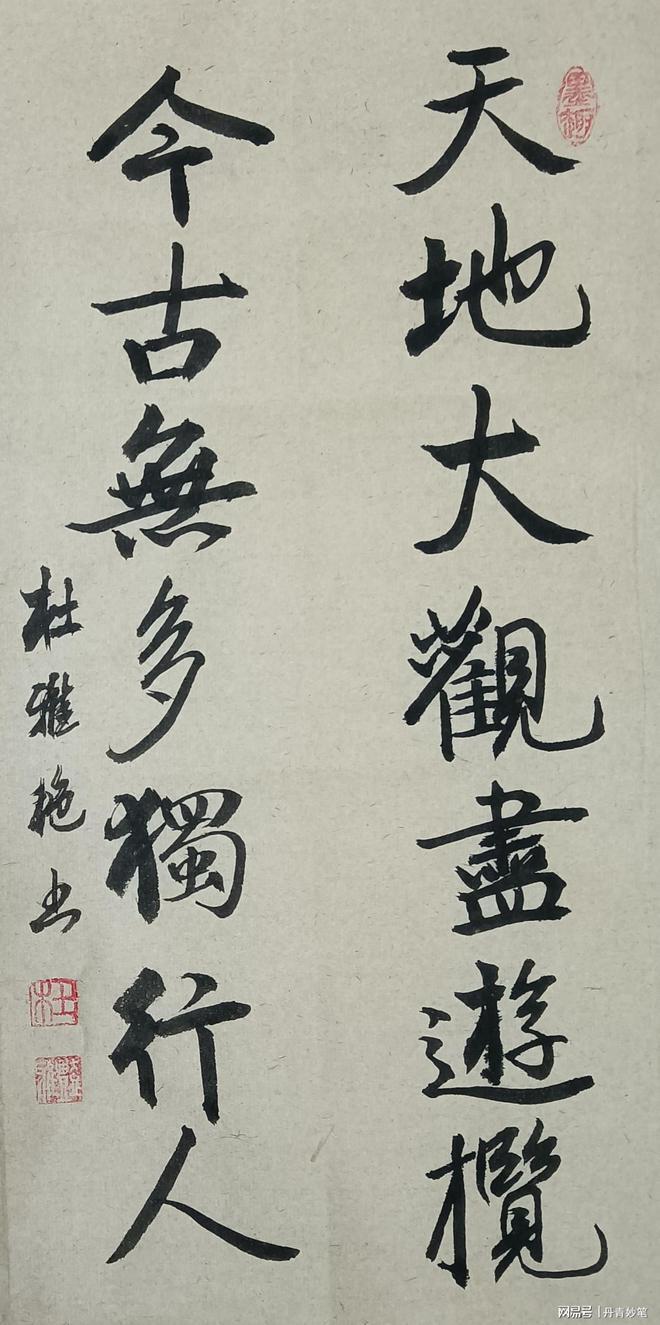 天地大觀盡遊欖
今古無多獨行人
杜雅艳书
墨趣
杜
网易号 | 丹青妙笔